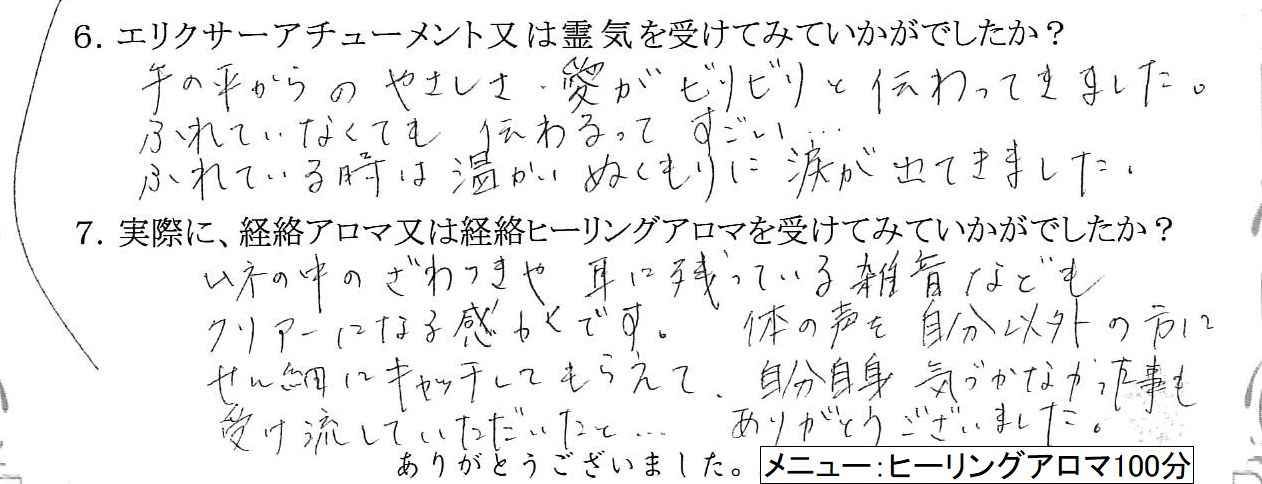 6. エリクサーアチューメント又は霊気を受けてみていかがでしたか?
手の平からの やさしさ・愛がビリビリと伝わってきました。
ふれていなくても 伝わるって すごい…
ふれている時は温かいぬくもりに涙が出てきました。
7. 実際に、経絡アロマ又は経絡ヒーリングアロマを受けてみていかがでしたか?
の中のざわつきや 耳に残っている雑音なども
クリアーになる感かくです。 体の声を自分以外の方に
せん細にキャッチしてもらえて、自分自身 気づかなかった事も
受け流していただいたと… ありがとうございました。
ありがとうございました。 メニュー:ヒーリングアロマ100分